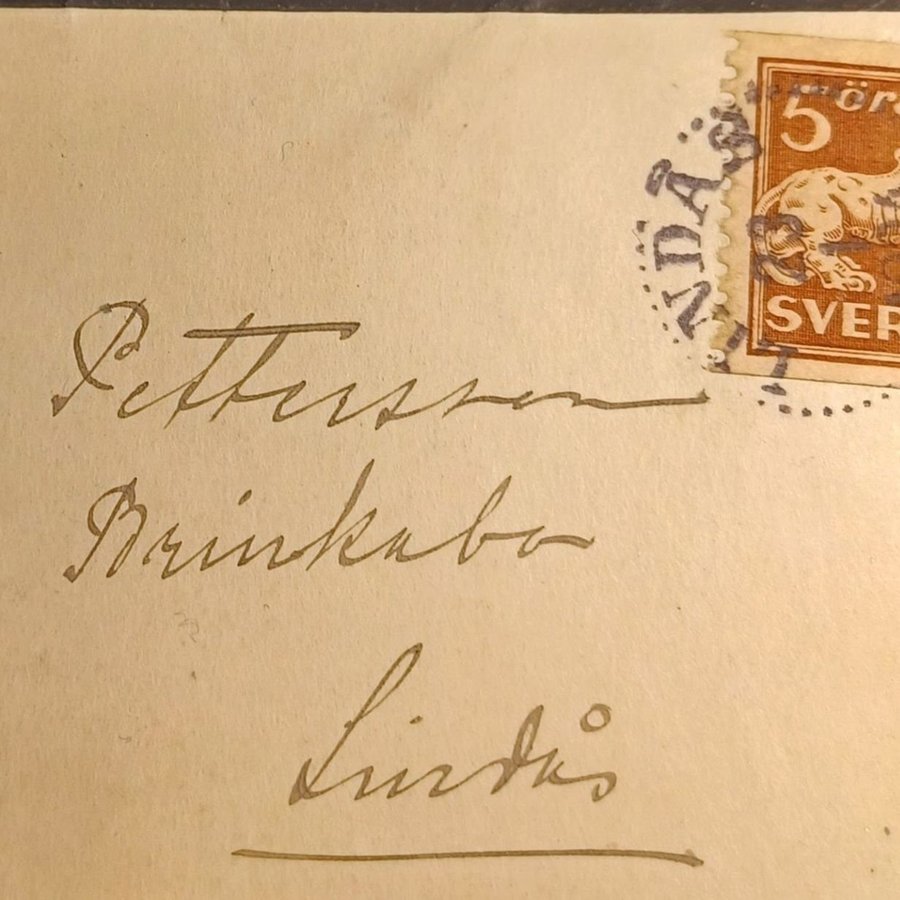 5 öre
SVER
LINDÅS
Pettersson
Brinkabo
Lindås